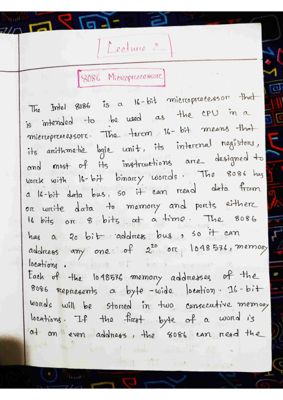 Lecture 2
8086 Microprocessor
The Intel 8086 is a 16-bit microprocessor that
is intended to be used as the CPU in a
microprocessor. The term, 16-bit means that
its arithmetic logic unit, its internal registers,
and most of its instructions are designed to
work with 16-bit binary words. The 8086 has
a 16-bit data bus, so it can read data from
or write data to memory and ports either
16 bits or 8 bits at a time. The 8086
has a 20 bit address bus, so it can
address any one of 2^20 or 1048576, memory
locations.
Each of the 1048576 memory addresses of the
8086 represents a byte-wide location. 16-bit
words will be stored in two consecutive memory
locations. If the first byte of a word is
at an even address, the 8086 can read the